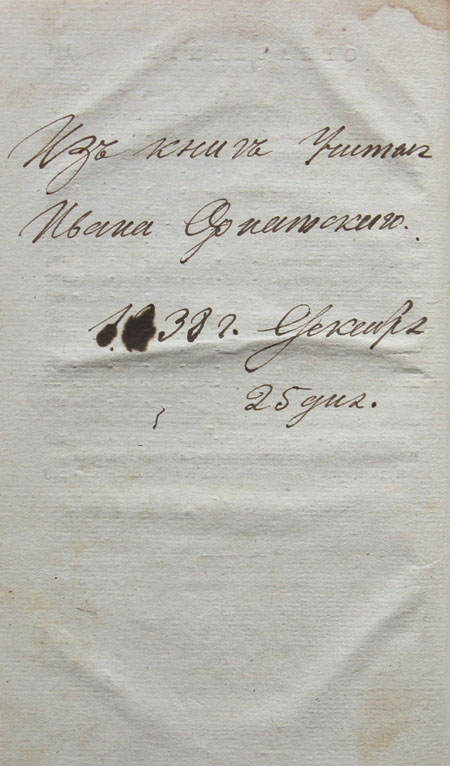 Изъ книгъ Учителя
Ивана Орнатского.
38 г. Декабря
25 дня.